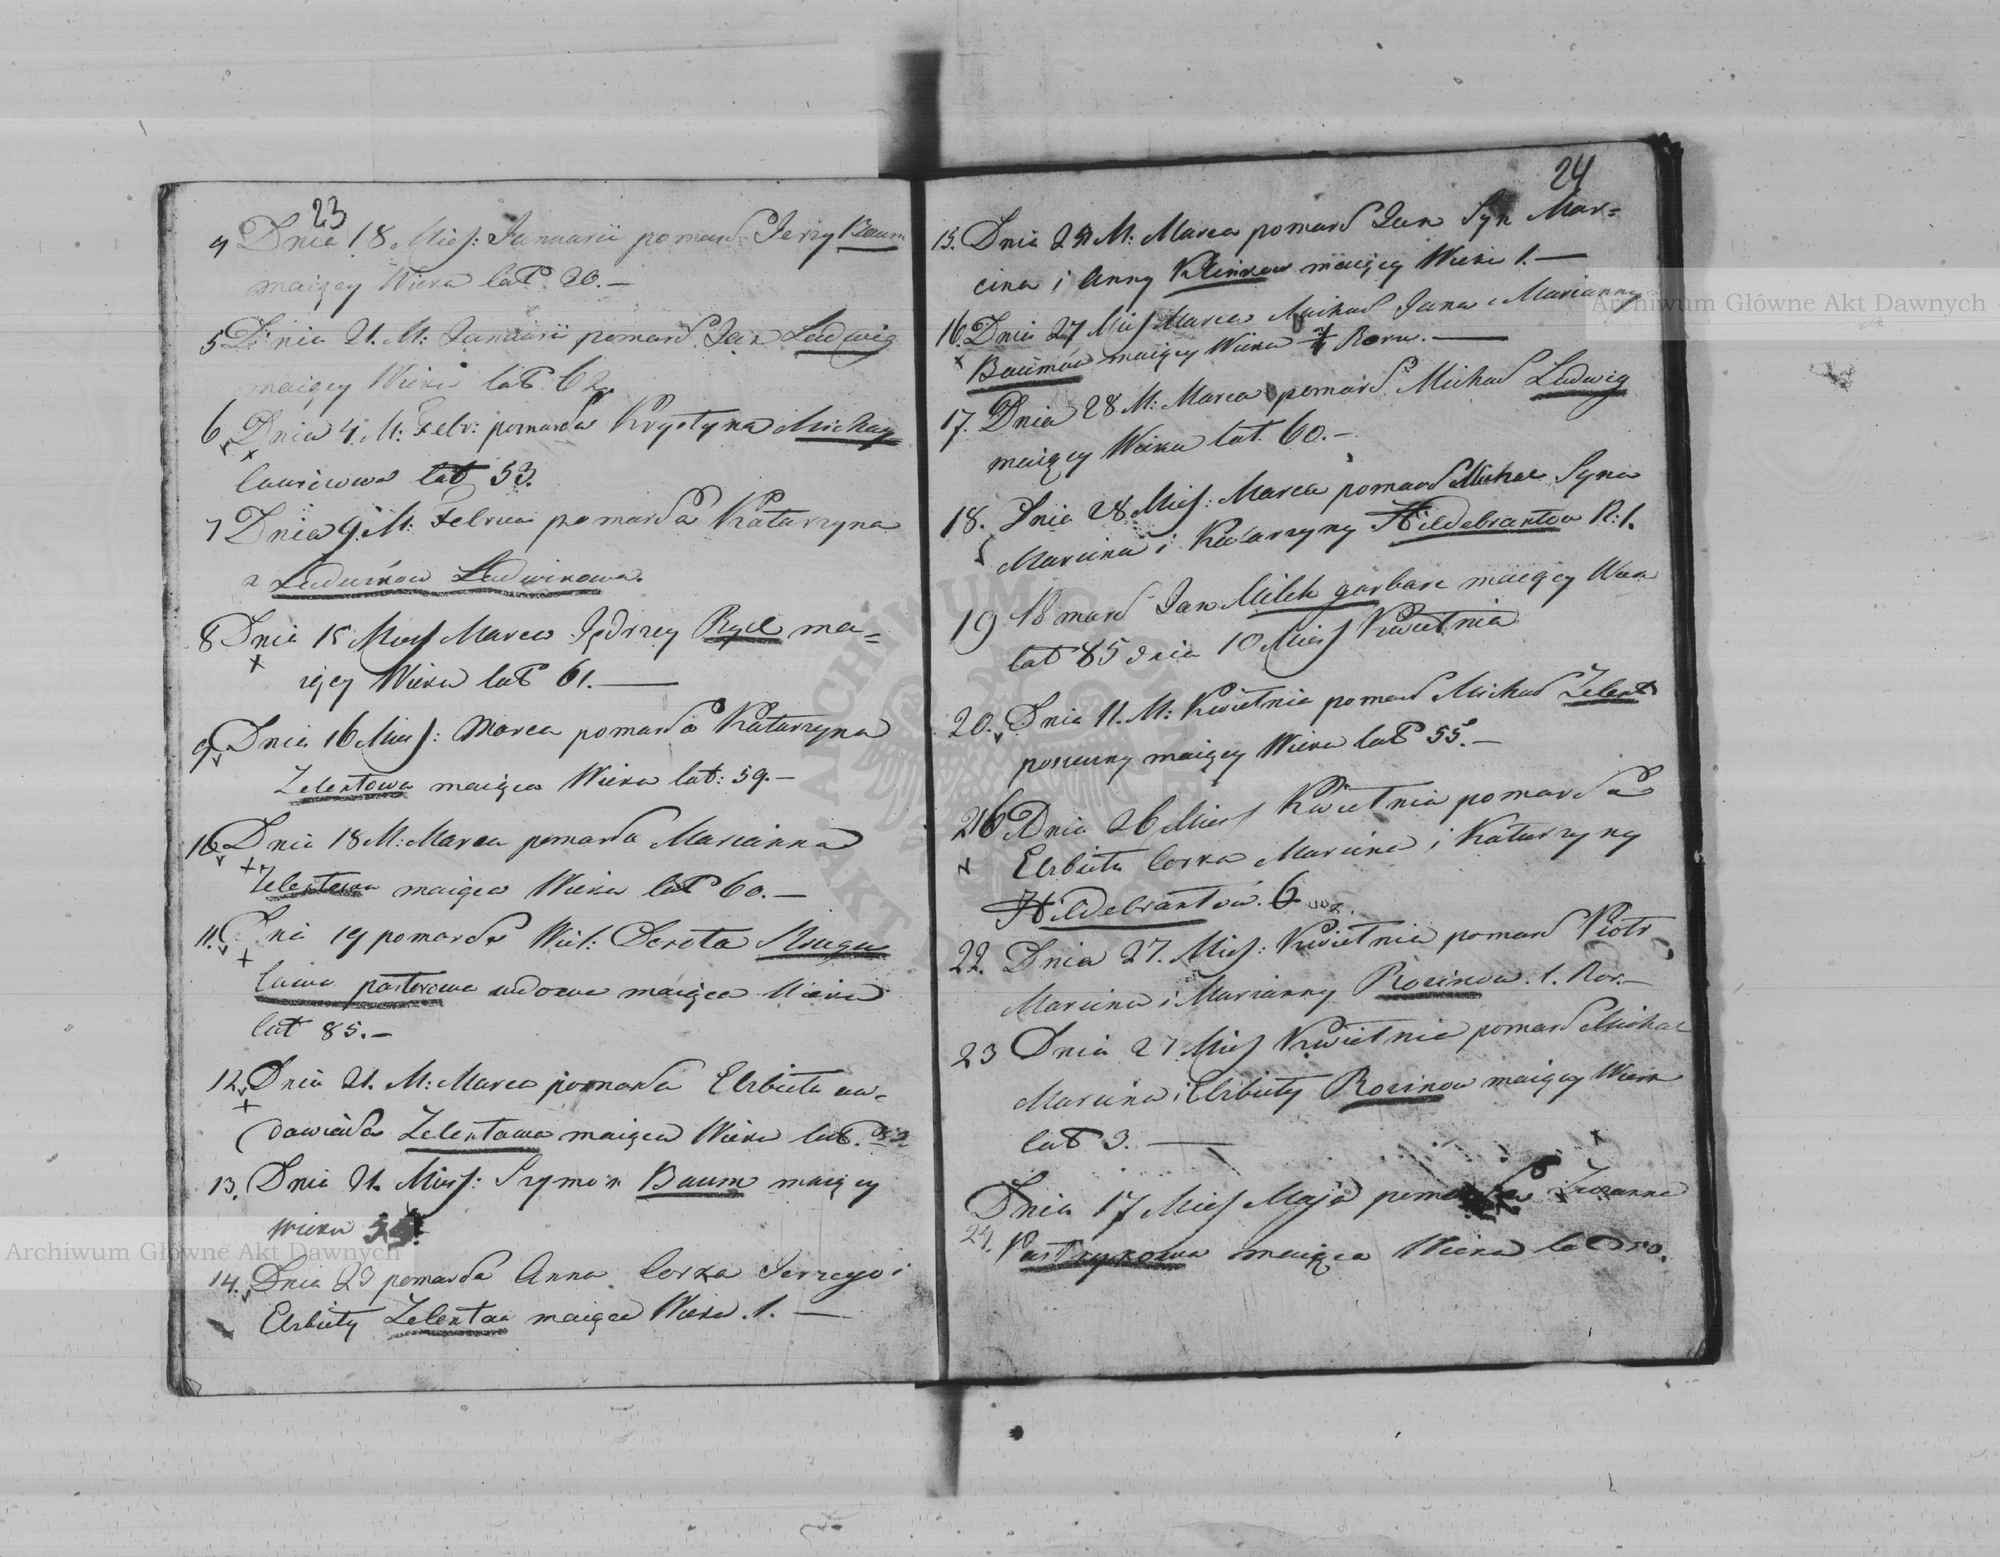 23
4 Dnia 18. Mies: Januarii pomarł Jerzy Baum
maiący Wieku lat 20.—
5 Dnia 21. M: Januarii pomarł Jan Ludwig
maiący Wieku lat 62.
6 Dnia 4. M: Febr: pomarła Krystyna Michay
lat 53.
7 Dnia 9. M: Februa pomarła Katarzyna
z Ludwikow Ludwikowa.
8 Dnia 15 Mies Marca Jędrzey Rycl ma=
iący Wieku lat 61.—
9 Dnia 16 Mies: Marca pomarła Katarzyna
Zelentowa maiąca Wieku lat: 59.—
10 Dnia 18 M: Marca pomarła Marianna
Zelentowa maiąca Wieku lat 60.—
11. Dnia 19 pomarła Wiel: Dorota
pastorowa wdowa maiąca Wieku
lat 85.—
12 Dnia 21. M: Marca pomarła Elzbieta ow=
dowiała Zelentowa maiąca Wieku lat.
13. Dnia 21. Mies: Szymon Baum maiący
wieku
14. Dnia 23 pomarła Anna Corka Jerzego i
Elzbiety Zelentow maiąca Wieku. 1.—
24
15. Dnia M: Marca pomarł Jan Syn Mar=
cina i Anny maiący Wieku 1.—
16. Dnia 27 Mies Marca Michał Jana i Marianny
Baumów maiący Wieku Roku.—
17. Dnia 28 M: Marca pomarł Michał Ludwig
maiący Wieku lat 60.—
18. Dnia 28 Mies: Marca pomarł Michał Syna
Marcina i Katarzyny Hildebrantow R: 1.
19 Pomarł Jan Milch garbarz maiący Wieku
lat 85 dnia 10 Mies Kwietnia
20. Dnia 11. M: Kwietnia pomarł Michał Zelent
maiący Wieku lat 55.—
Dnia 26 Mies Kwietnia pomarła
Elzbieta Corka Marcina i Katarzyny
Hildebrantów. 6
22. Dnia 27. Mies: Kwietnia pomarł Piotr
Marcina i Marianny Rozinow. 1. Rok.—
23 Dnia 27 Mies Kwietnia pomarł Michał
Marcina i Elzbiety Rozinow maiący Wieku
lat 3.—
Dnia 17 Mies Maja pomarła Zuzanna
24. Pastrykowa maiąca Wieku lat 50.
Archiwum Główne Akt Dawnych
Archiwum Główne Akt Dawnych